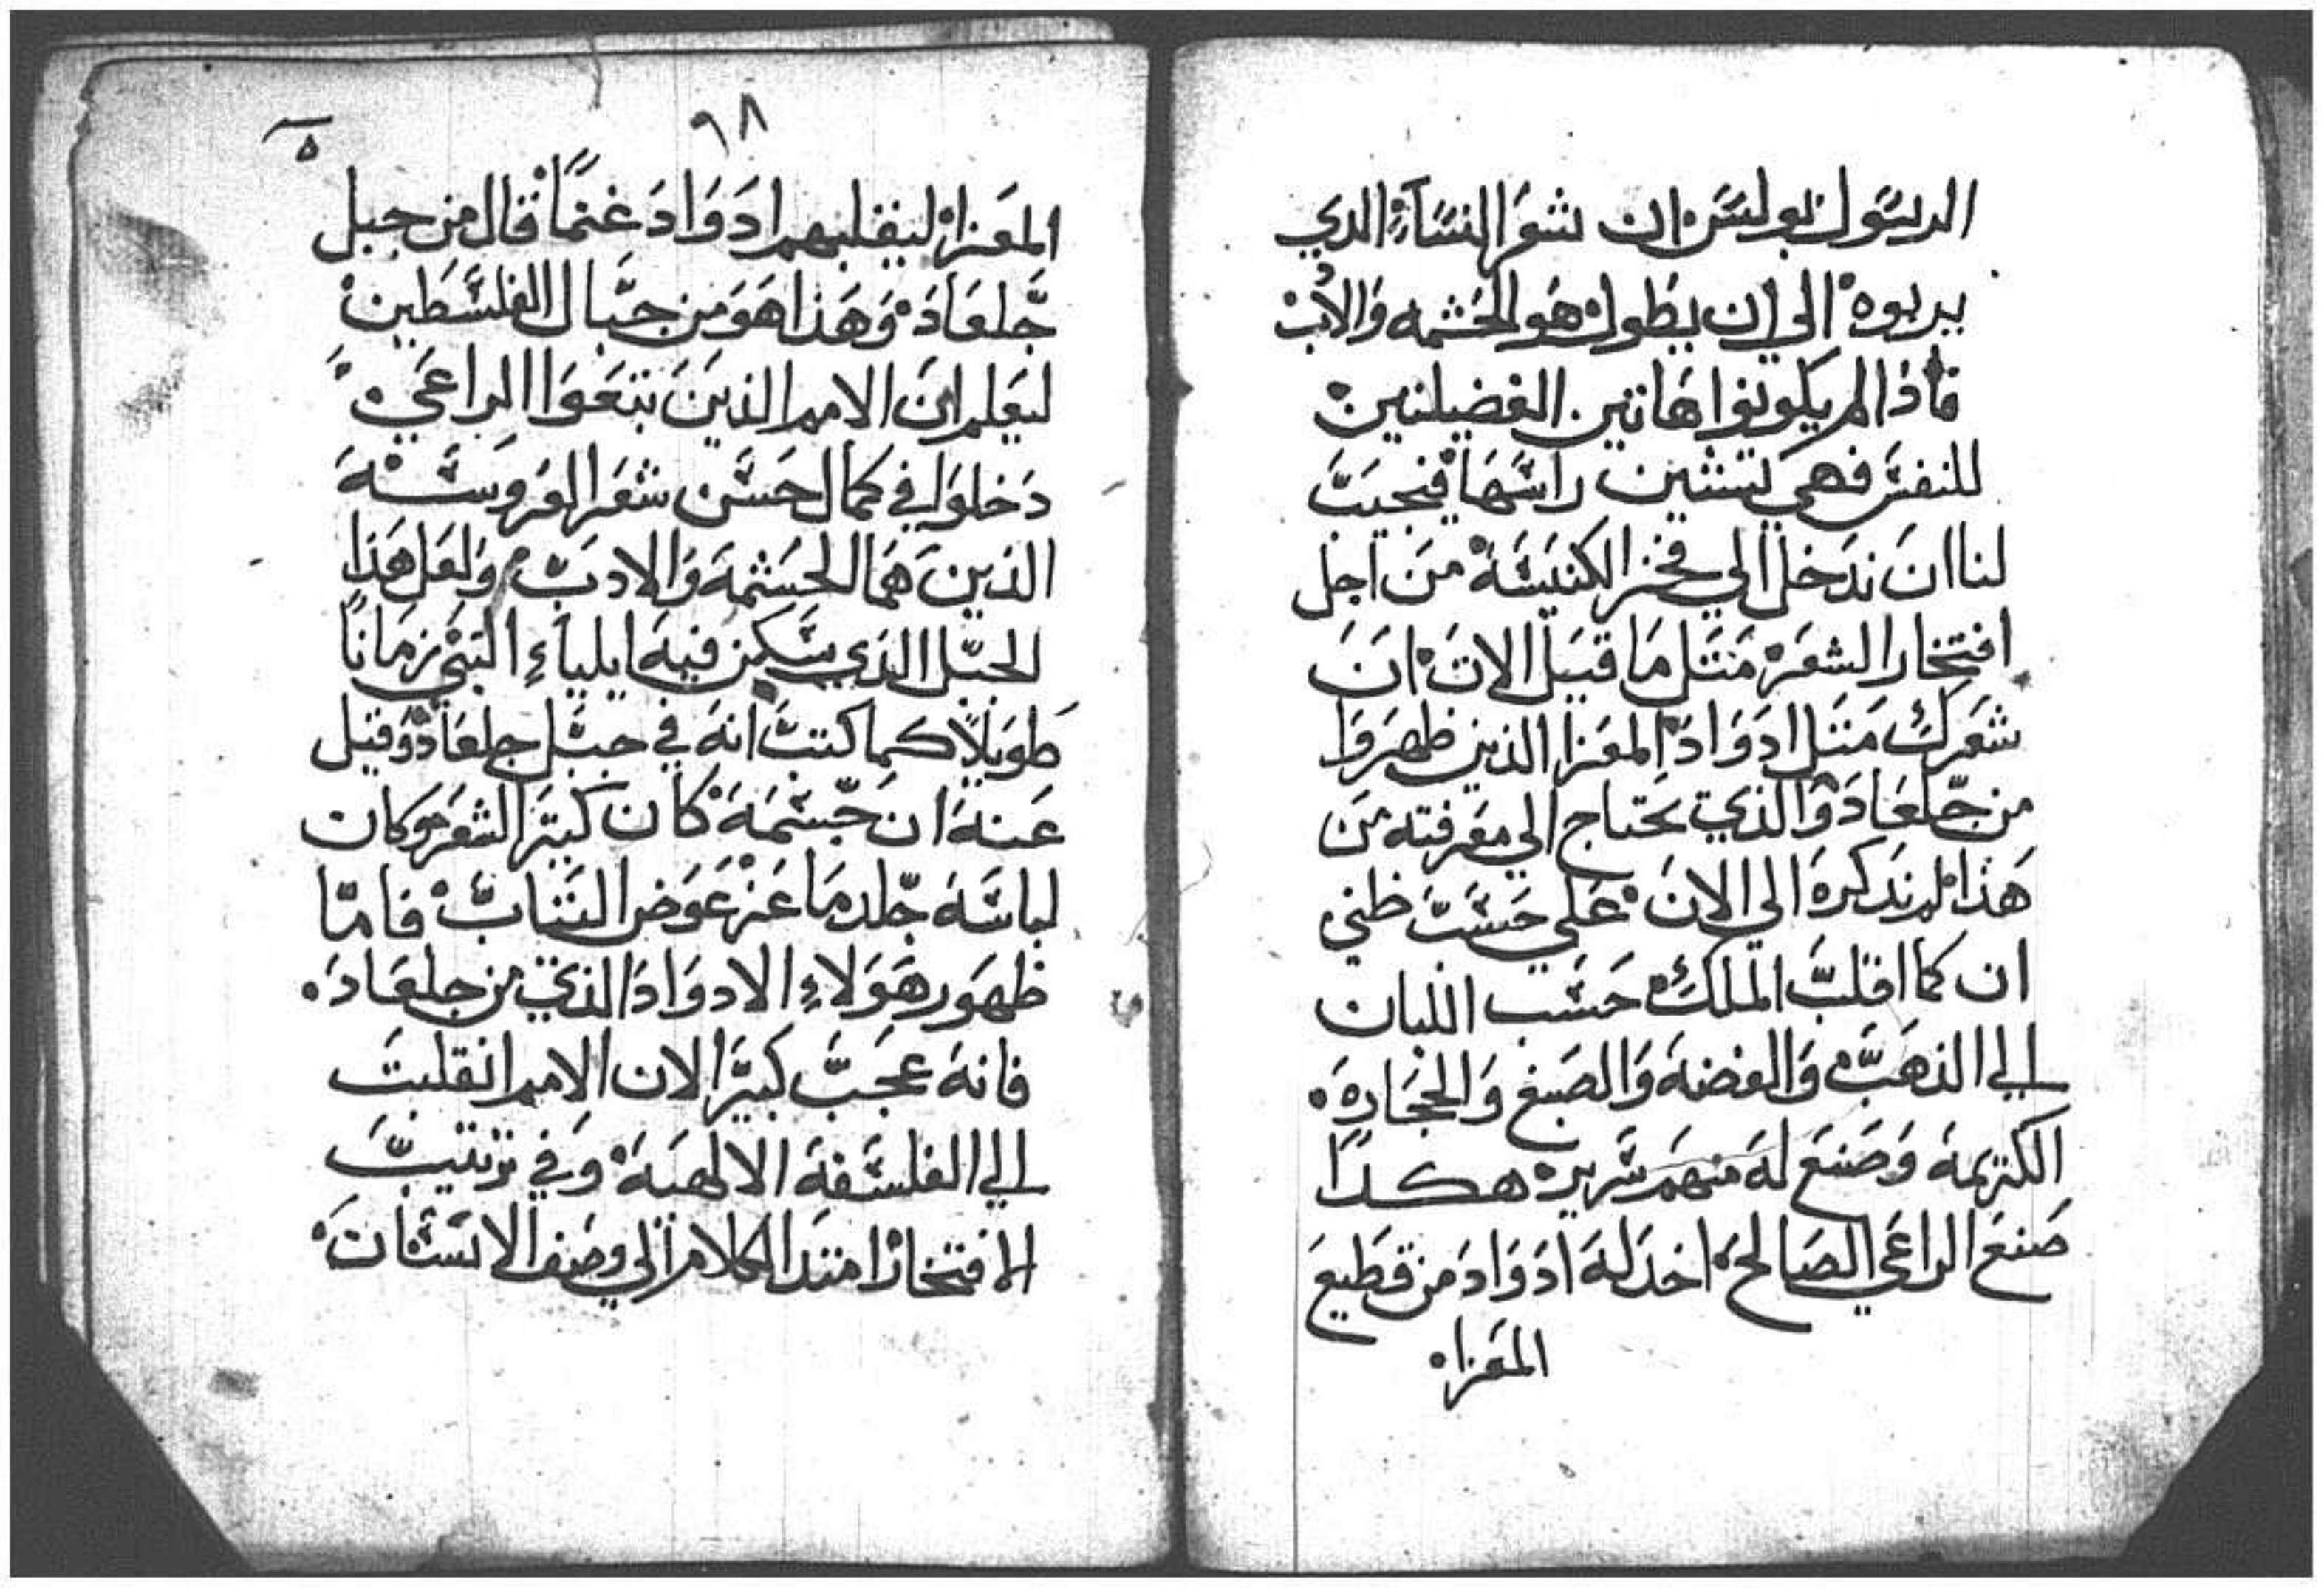 الرسول بولس ان شعر النساء الذي
يربوه الي ان يطول هو الحشمه والادب
فاذا لم يكونوا هاتين الفضيلتين
للنفس فهي تشين راسها فيجب
لنا ان ندخل الي فخر الكنيسة من اجل
افتخار الشعر مثل ما قيل الان ان
شعرك مثل ادواد المعزا الذين ظهروا
من جلعاد والذي يحتاج الي معرفته من
هذا لم نذكره الي الان علي حسب ظني
ان كما اقلب الملك خشب اللبان
الي الذهب والفضة والصبغ والحجارة
الكريمة وصنع له منهم سرير هكذا
صنع الراعي الصالح اخذ له ادواد من قطيع
المعزا
٩٨
المعزا ليقلبهم ادواد غنما قال من جبل
جلعاد وهذا هو من جبال الفلسطين
ليعلم ان الامم الذين تبعوا الراعي
دخلوا في كمال حسن شعر العروسة
الذين هما الحشمة والادب ولعل هذا
الجبل الذي سكن فيه ايلياء النبي زمانا
طويلا كما كتب انه في جبل جلعاد وقيل
عنه ان جسمه كان كتير الشعر وكان
لباسه جلد ماعز عوض الثياب فاما
ظهور هولاء الادواد الذي من جلعاد
فانه عجب كبير لان الامم انقلبت
الي الفلسفة الالهية وفي ترتيب
الافتخار امتد الكلام الي وصف الاسنان